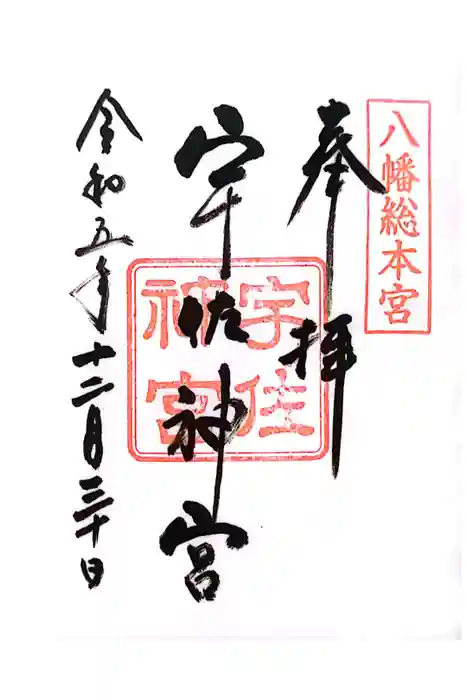 八幡総本宮
奉拝
宇佐神宮
宇佐
神宮
令和五年十二月三十日